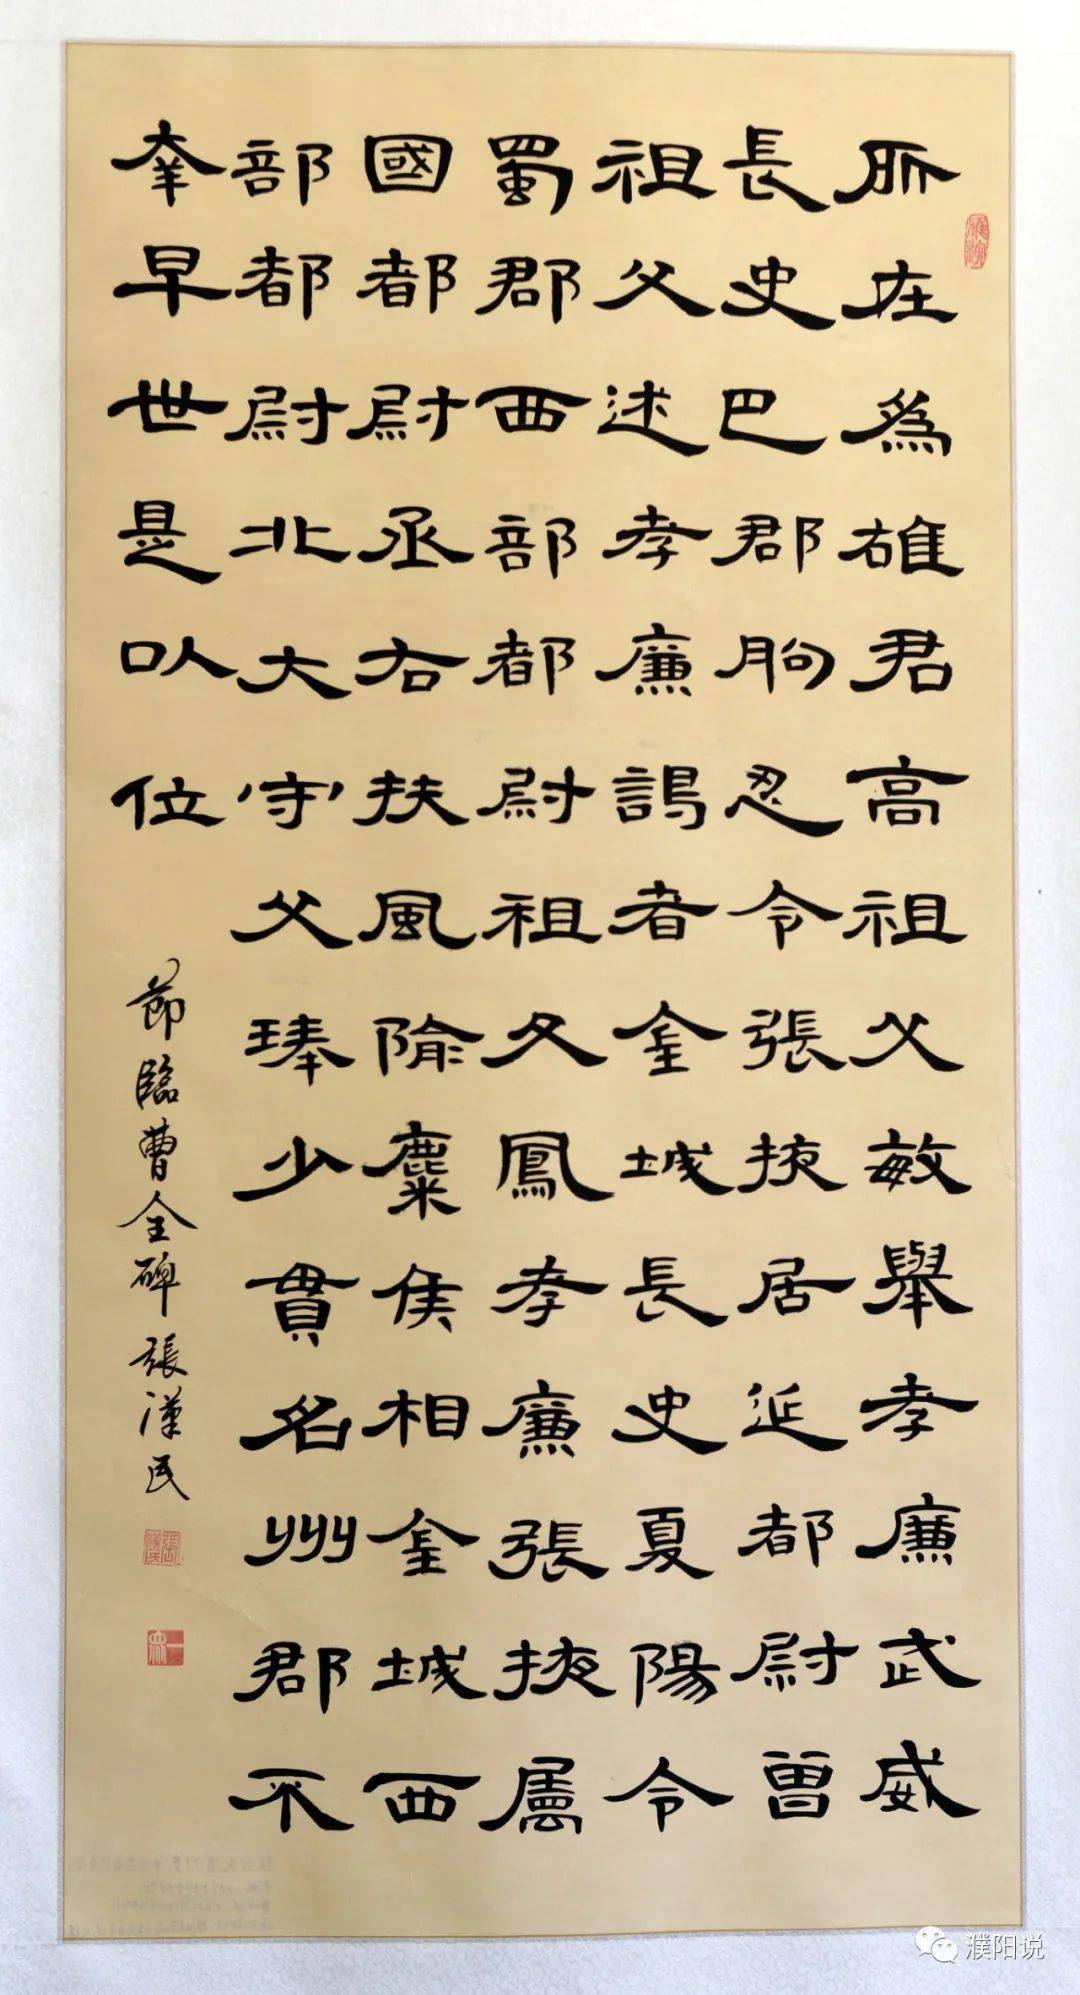 所在為雄君高祖父敏舉孝廉武威
長史巴郡朐忍令張掖居延都尉曾
祖父述孝廉謁者金城長史夏陽令
蜀郡西部都尉祖父鳳孝廉張掖屬
國都尉丞右扶風隃麋侯相金城西
部都尉北大守父琫少貫名州郡不
幸早世是以位
節臨曹全碑張漢民
濮阳说